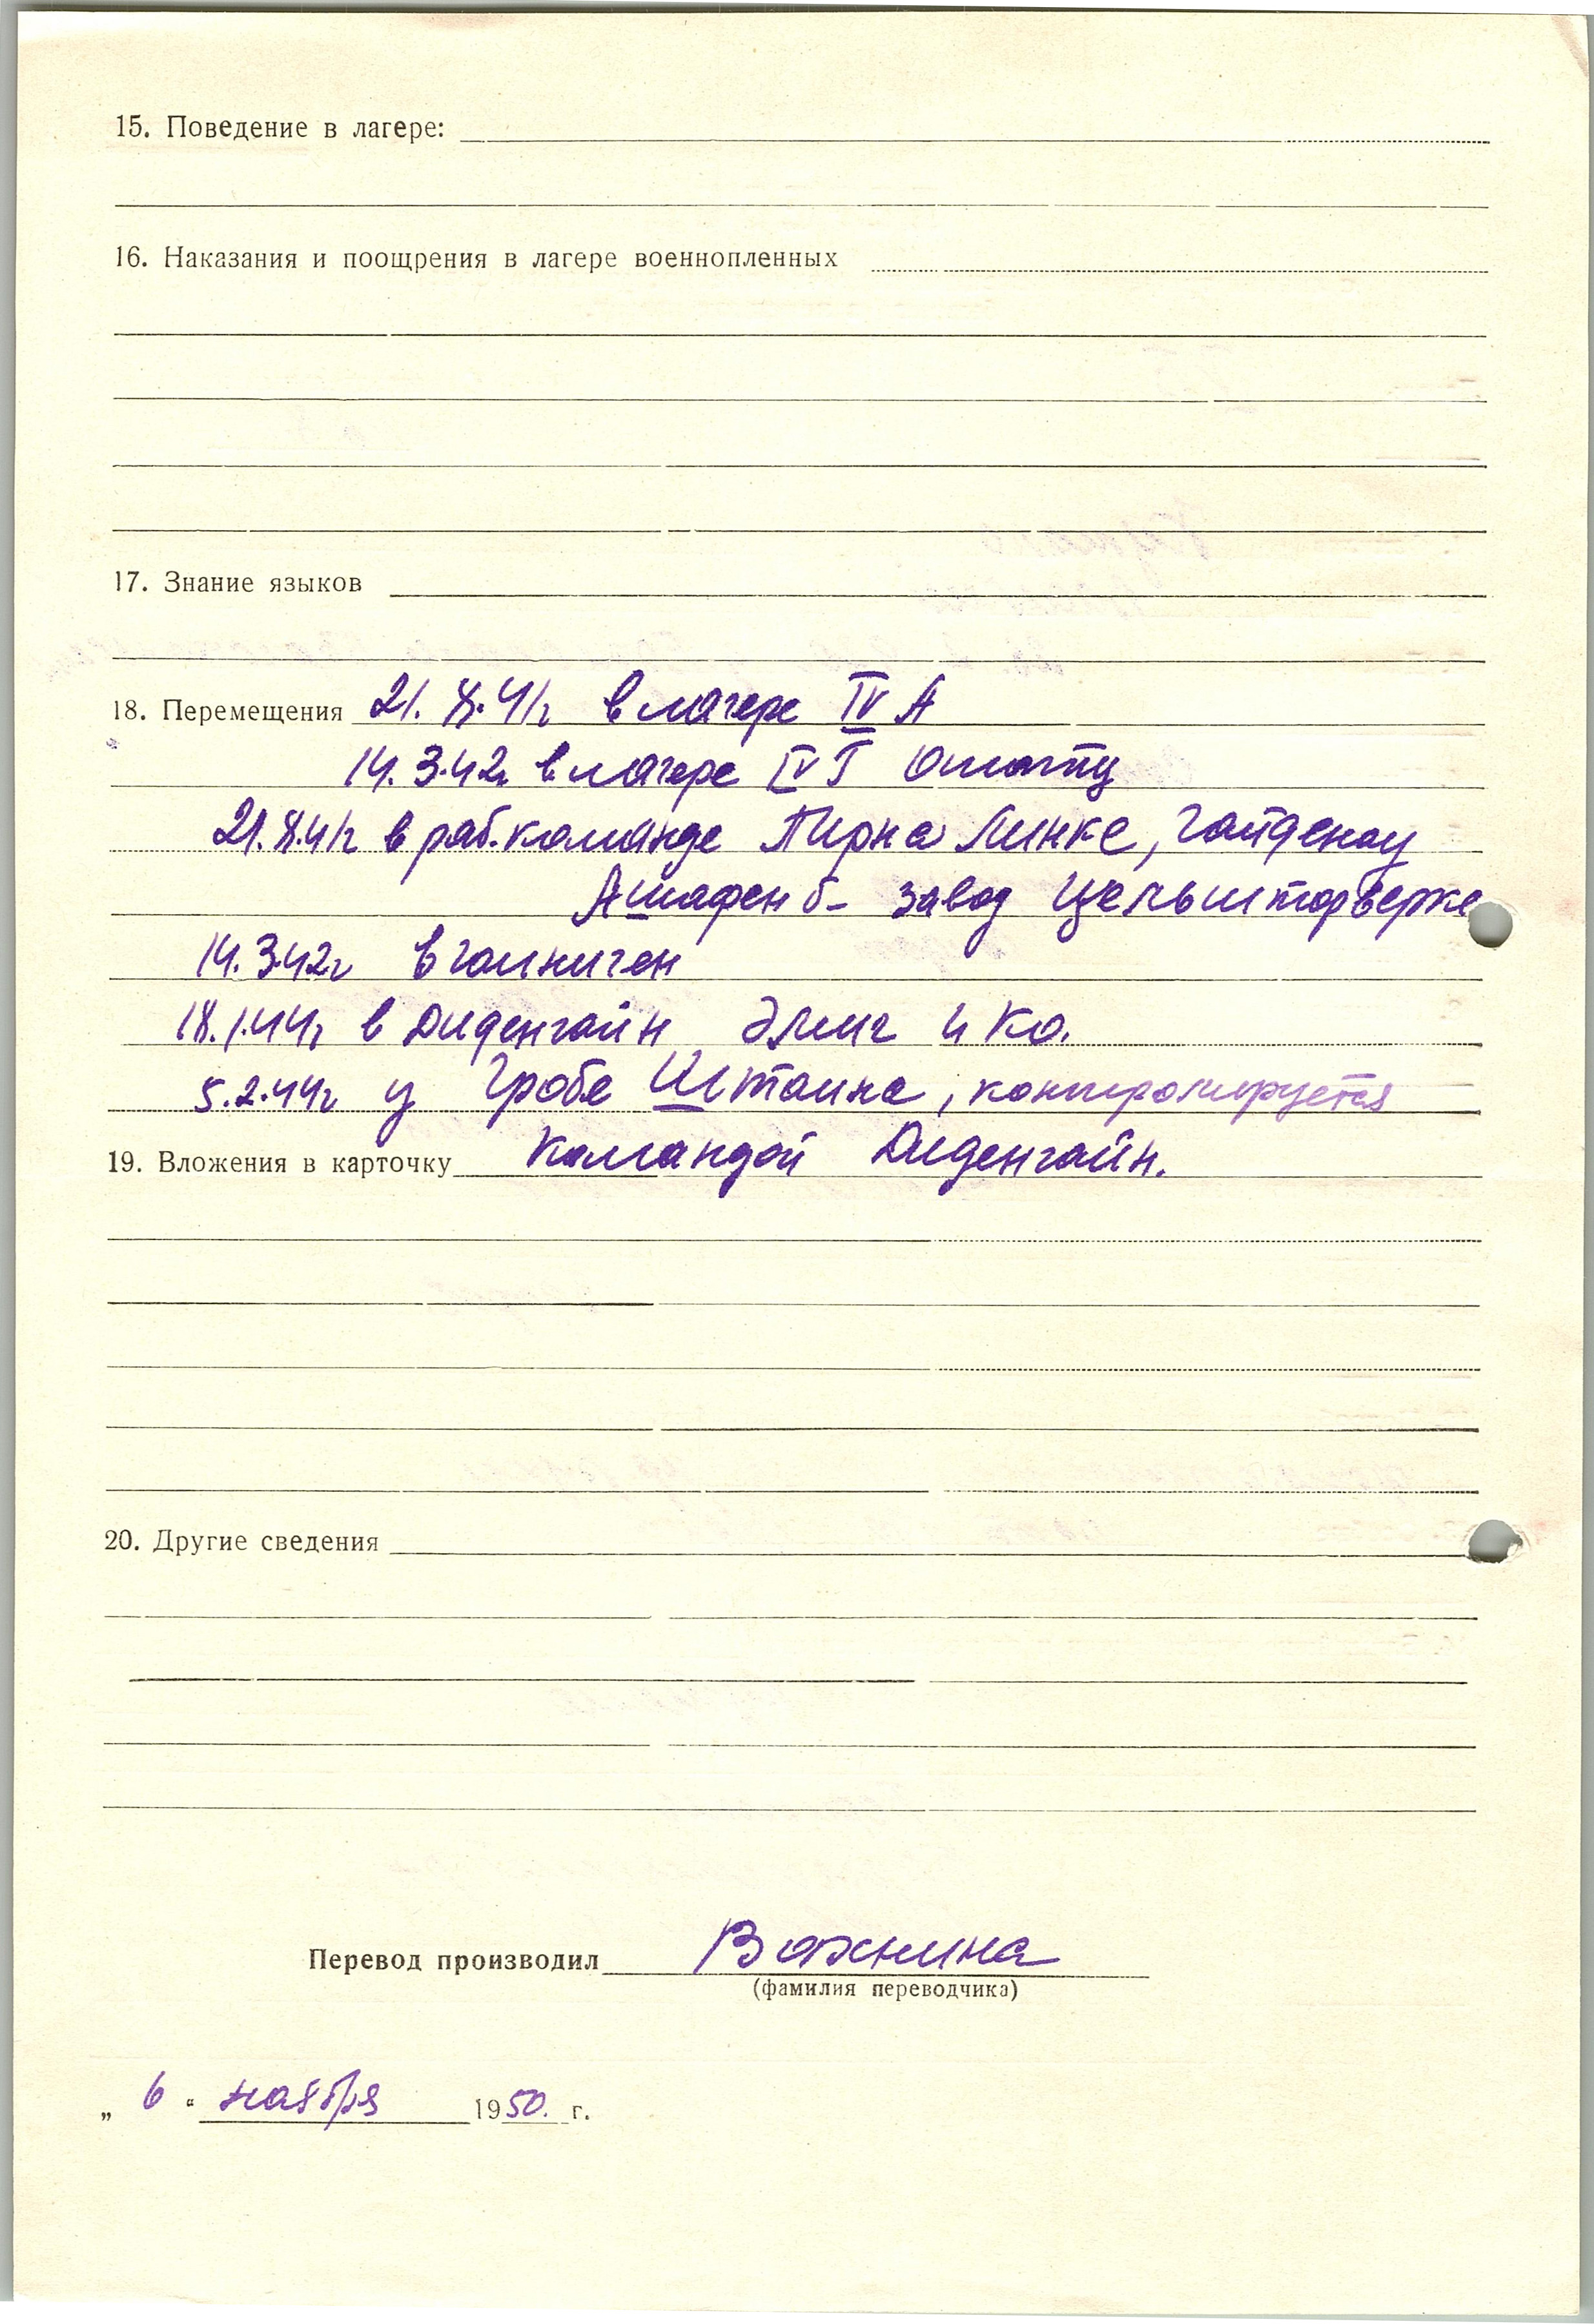 15. Поведение в лагере:
16. Наказания и поощрения в лагере военнопленных
17. Знание языков
18. Перемещения 21. X. 41г в лагере IV А
14. 3.42г в лагере IV Г Ошатц
21. X. 41г в раб. команде Пирна Линке, Гайденау
Ашафенб- завод Цельшторверке
14. 3.42г в Гайниген
18. 1.44г в Диденгайн Элиг и Ко.
5. 2.44г у Гробе Штайна, контролируется
19. Вложения в карточку командой Диденгайн.
20. Другие сведения
Перевод производил Важнина
(фамилия переводчика)
„ 6 “ ноября 1950. г.